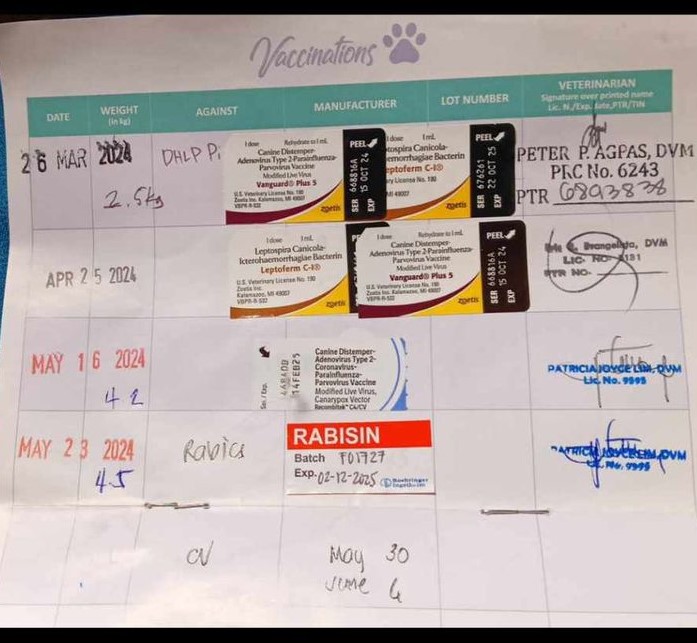 Vaccinations
DATE WEIGHT AGAINST MANUFACTURER LOT NUMBER VETERINARIAN
(in kg) Signature over printed name
Lic. N./Exp. date,PTR/TIN
26 MAR 2024
2.5kg
DHLP Pi
1 dose Rehydrate to 1 mL
Canine Distemper-
Adenovirus Type 2-Parainfluenza-
Parvovirus Vaccine
Modified Live Virus
Vanguard® Plus 5
U.S. Veterinary License No. 190
Zoetis Inc. Kalamazoo, MI 49007
VBPR-R-532
zoetis
PEEL
SER 668816A
EXP 15 OCT 24
dose 1mL
Canicola-
emorrhagiae Bacterin
eptoferm C-I®
License No. 190
MI 49007
zoetis
PEEL
SER 676261
EXP 22 OCT 25
PETER P. AGPAS, DVM
PRC No. 6243
PTR 6893838
APR 25 2024
1 dose 1mL
Leptospira Canicola-
Icterohaemorrhagiae Bacterin
Leptoferm C-I®
U.S. Veterinary License No. 190
Zoetis Inc.
Kalamazoo, MI 49007
VBPR-R-537
zoetis
1 dose Rehydrate to 1 mL
Canine Distemper-
Adenovirus Type 2-Parainfluenza-
Parvovirus Vaccine
Modified Live Virus
Vanguard® Plus 5
U.S. Veterinary License No. 190
Zoetis Inc. Kalamazoo, MI 49007
VBPR-R-532
zoetis
PEEL
SER 668816A
EXP 15 OCT 24
Evangelista, DVM
LIC. NO.
PTR NO.
MAY 16 2024
4.2
Ser. / Exp.
14FEB25
Canine Distemper-
Adenovirus Type 2-
Coronavirus-
Parainfluenza-
Parvovirus Vaccine
Modified Live Virus,
Canarypox Vector
Recombitek® C6/CV
PATRICIA JOYCE LIM, DVM
Lic. No. 9995
MAY 23 2024
4.5
Rabies
RABISIN
Batch F01727
Exp. 02-12-2025
Boehringer
Ingelheim
PATRICIA JOYCE LIM, DVM
Lic. No. 9995
CV
May 30
June 6